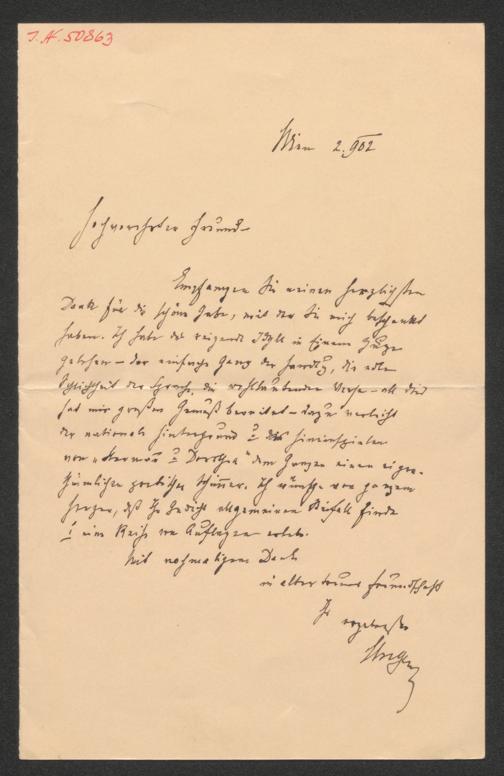 J.N. 50863
Wien 2. 902
Hochverehrter Freund
Empfangen Sie meinen herzlichsten
Dank für die schöne Gabe, mit der Sie mich beschenkt
haben. Ich habe die reizende Idylle in Einem Zuge
gelesen – der einfache Gang der Handlg, die edle
Schlichtheit der Sprache, die wohllautenden Verse – all dies
hat mir großen Genuß bereitet – dazu verleiht
der nationale Hintergrund u das Hineinspielen
von „Hermann u Dorothea" dem Ganzen einen eigen-
thümlichen poetischen Schimmer. Ich wünsche von ganzem
Herzen, daß Ihr Gedicht allgemeinen Beifall finde
u eine Reihe von Auflagen erlebe.
Mit nochmaligem Dank
in alter treuer Freundschaft
Ihr ergebenster